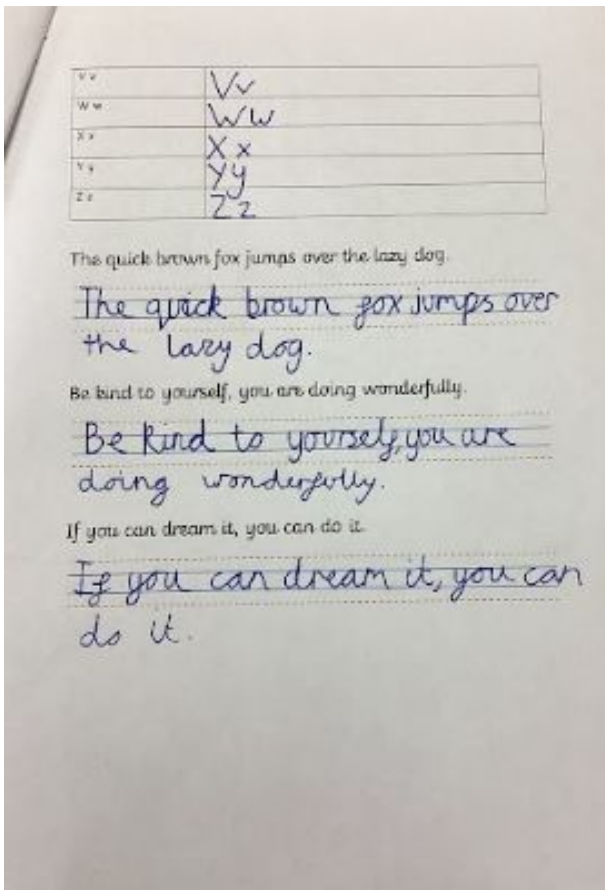 V v Vv
W w Ww
X x X x
Y y Yy
Z z Zz
The quick brown fox jumps over the lazy dog.
The quick brown fox jumps over
the lazy dog.
Be kind to yourself, you are doing wonderfully.
Be kind to yourself, you are
doing wonderfully.
If you can dream it, you can do it.
If you can dream it, you can
do it.